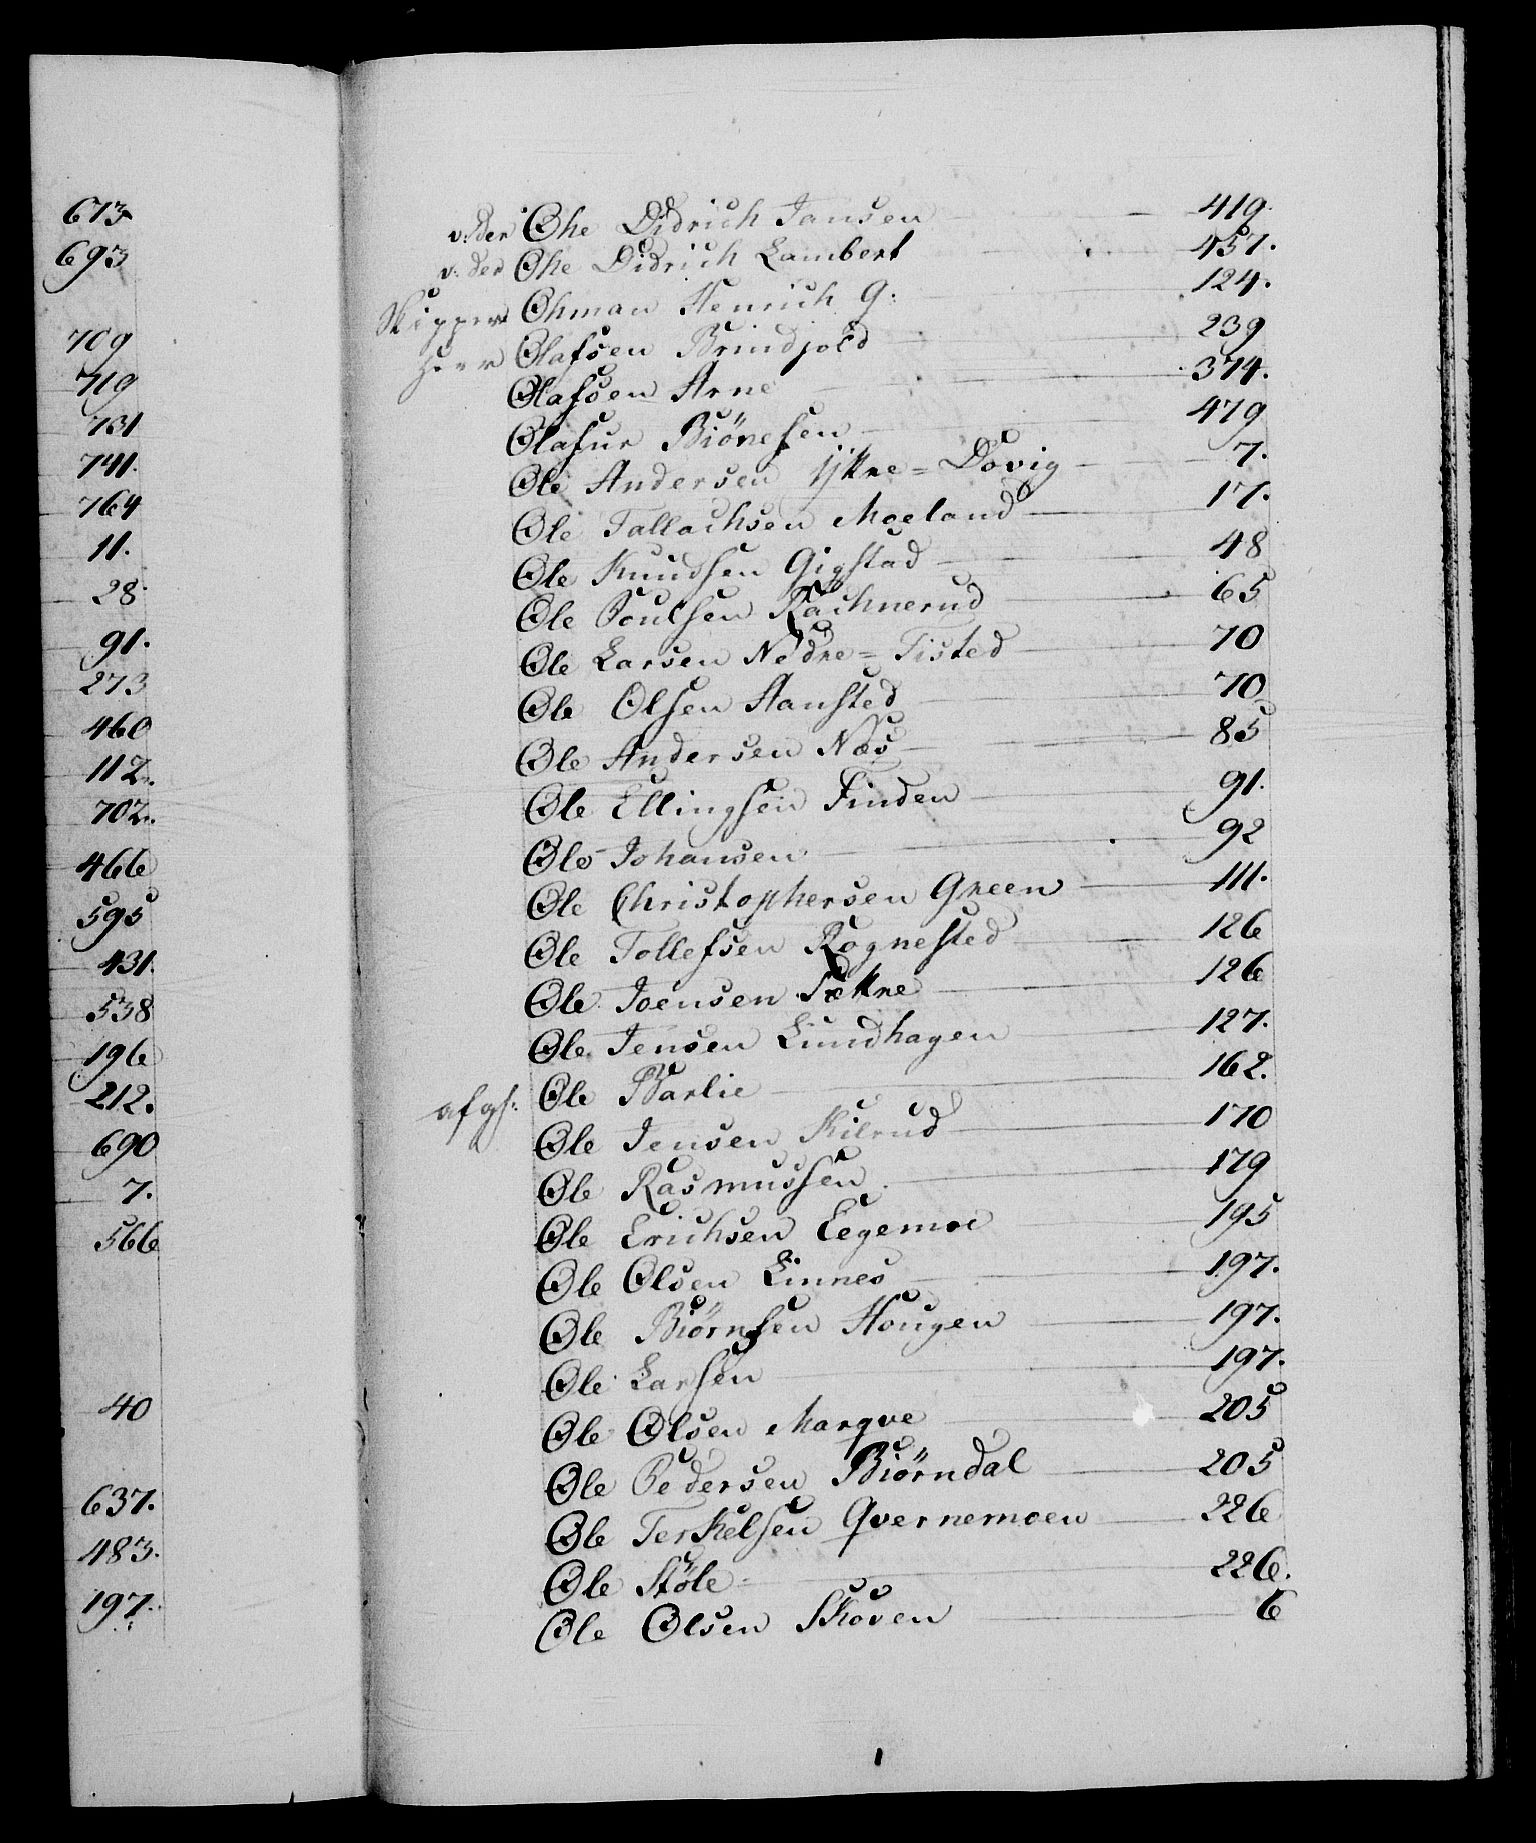 673
693
709
719
731
741.
764
11.
28.
91.
273
460
112.
702.
466
595
431.
538
196
212.
690
7.
566
40
637.
483.
197.
v: der Ohe Didrich Jansen 419.
v: der Ohe Didrich Lambert 457.
Skipper Ohman Henrich G: 124.
Herr Olafsen Brindjold 239
Olafsen Arne 374.
Olafur Biönesen 479
Ole Andersen Yttre=Dovig 7.
Ole Tallachsen Moeland 17.
Ole Knudsen Gigstad 48
Ole Poulsen Rachnerud 65
Ole Larsen Nedre=Tisted 70
Ole Olsen Aansted 70
Ole Andersen Næs 85
Ole Ellingsen Finden 91.
Ole Johansen 92
Ole Christophersen Green 111.
Ole Tollefsen Rognested 126
Ole Joensen Sættre 126
Ole Jensen Lundhagen 127.
afgs: Ole Barlie 162.
Ole Jensen Kilrud 170
Ole Rasmussen 179
Ole Erichsen Eegemoe 195
Ole Olsen Linnes 197.
Ole Biörnsen Hougen 197.
Ole Larsen 197.
Ole Olsen Marqve 205
Ole Pedersen Biörndal 205
Ole Terkelsen Qvernemoen 226
Ole Stöle 226.
Ole Olsen Skoven 6
1